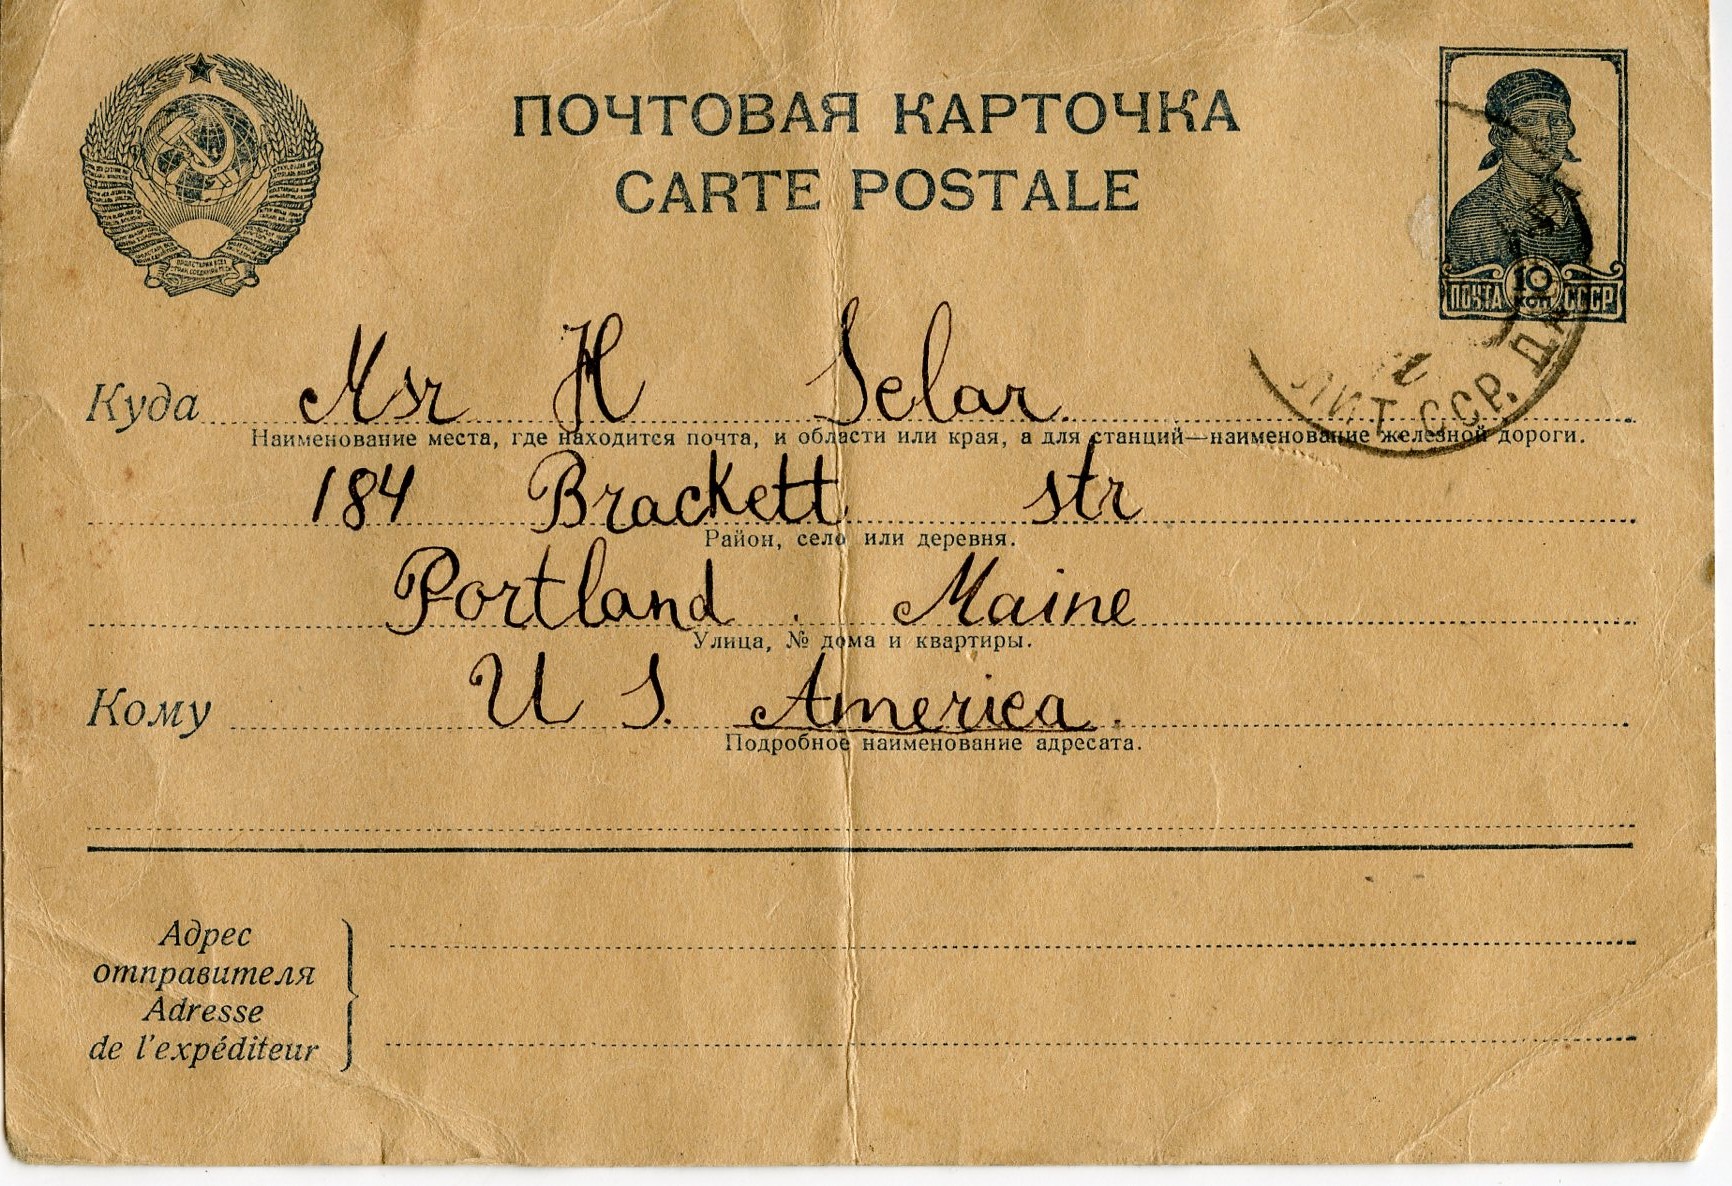 ПОЧТОВАЯ КАРТОЧКА
CARTE POSTALE
10 КОП
ПОЧТА СССР
Куда Msr H Selar
Наименование места, где находится почта, и области или края, а для станций—наименование железной дороги.
ЛИТ. ССР.
184 Brackett str
Район, село или деревня.
Portland Maine
Улица, № дома и квартиры.
Кому U S. America.
Подробное наименование адресата.
Адрес
отправителя
Adresse
de l'expéditeur